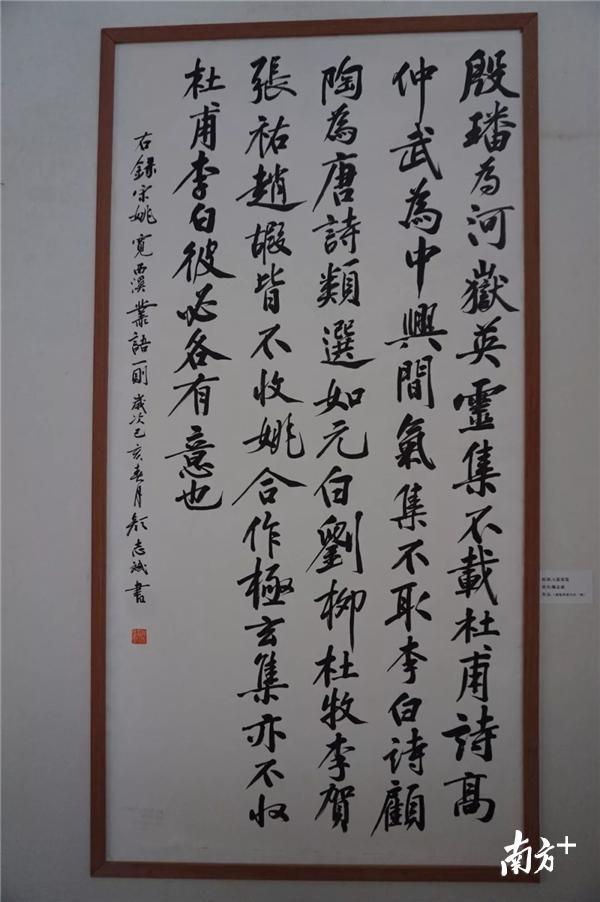 殷璠為河嶽英靈集不載杜甫詩高
仲武為中興間氣集不取李白詩顧
陶為唐詩類選如元白劉柳杜牧李賀
張祐趙嘏皆不收姚合作極玄集亦不收
杜甫李白彼必各有意也
右錄宋姚寬西溪叢語一則歲次己亥春月顏志斌書
南方+